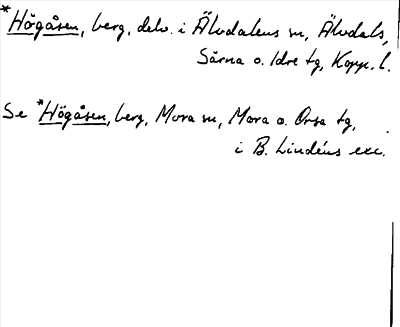 *Högåsen, berg, delv. i Älvdalens sn, Älvdals,
Särna o. Idre tg, Kopp. l.
Se *Högåsen, berg, Mora sn, Mora o. Orsa tg,
i B. Lindéns exc.